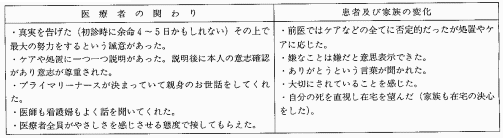 医療者の関わり
患者及び家族の変化
・真実を告げた(初診時に余命4〜5日かもしれない)その上で
最大の努力をするという誠意があった。
・ケアや処置に一つ一つ説明があった。説明後に本人の意志確認
があり意志が尊重された。
・プライマリーナースが決まっていて親身のお世話をしてくれ
た。
・医師も看護婦もよく話を聞いてくれた。
・医療者全員がやさしさを感じさせる態度で接してもらえた。
・前医ではケアなどの全てに否定的だったが処置やケ
アに応じた。
・嫌なことは嫌だと意思表示できた。
・ありがとうという言葉が聞かれた。
・大切にされていることを感じた。
・自分の死を直視し在宅を望んだ(家族も在宅の決心
をした)。